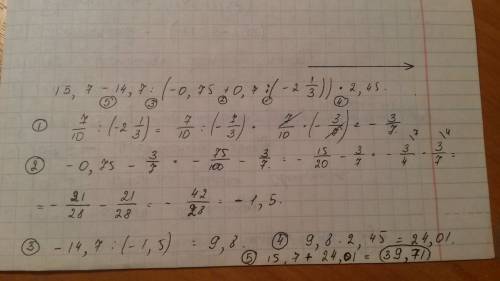 15,7 - 14,7 : (-0,75 + 0,7 : (-2 1/3)) · 2,45.
⑤ ③ ② ① ④
① 7/10 : (-2 1/3) = 7/10 : (-7/3) = 7/10 · (-3/7) = - 3/7
② -0,75 - 3/7 = - 75/100 - 3/7 = - 15/20 - 3/7 = - 3/4 \7 - 3/7 \4 =
= - 21/28 - 21/28 = - 42/28 = -1,5.
③ -14,7 : (-1,5) = 9,8. ④ 9,8 · 2,45 = 24,01.
⑤ 15,7 + 24,01 = 39,71